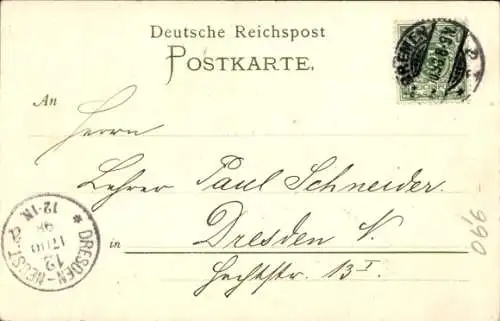 Deutsche Reichspost
POSTKARTE.
An
Herrn
Lehrer Paul Schneider.
in Dresden N.
Hechtstr. 13 I.
BREMEN
DRESDEN-NEUST
12
12-1N.
9,90